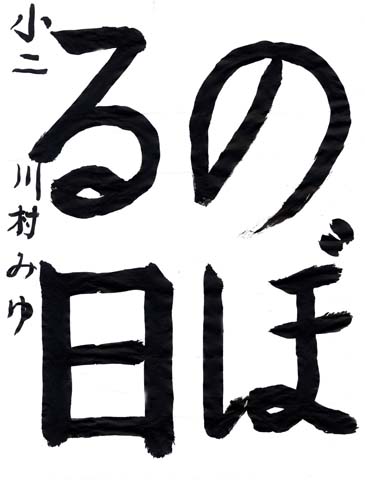 のぼ
る日
小二 川村みゆ